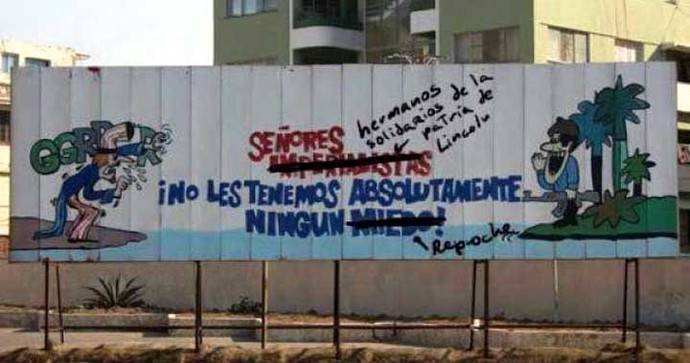 GGRRRRR
hermanos
solidarios de la
patria de
Lincoln
SEÑORES
IMPERIALISTAS
¡NO LES TENEMOS ABSOLUTAMENTE
NINGUN MIEDO!
Reproche